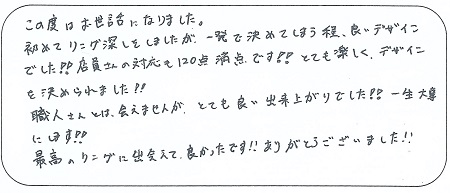 この度はお世話になりました。
初めてリング探しをしましたが、一発で決めてしまう程、良いデザイン
でした!!店員さんの対応も120点満点です!!とても楽しく、デザイン
を決められました!!
職人さんとは、会えませんが、とても良い出来上がりでした!!一生大事
にします!!
最高のリングに出会えて、良かったです!!ありがとうございました!!